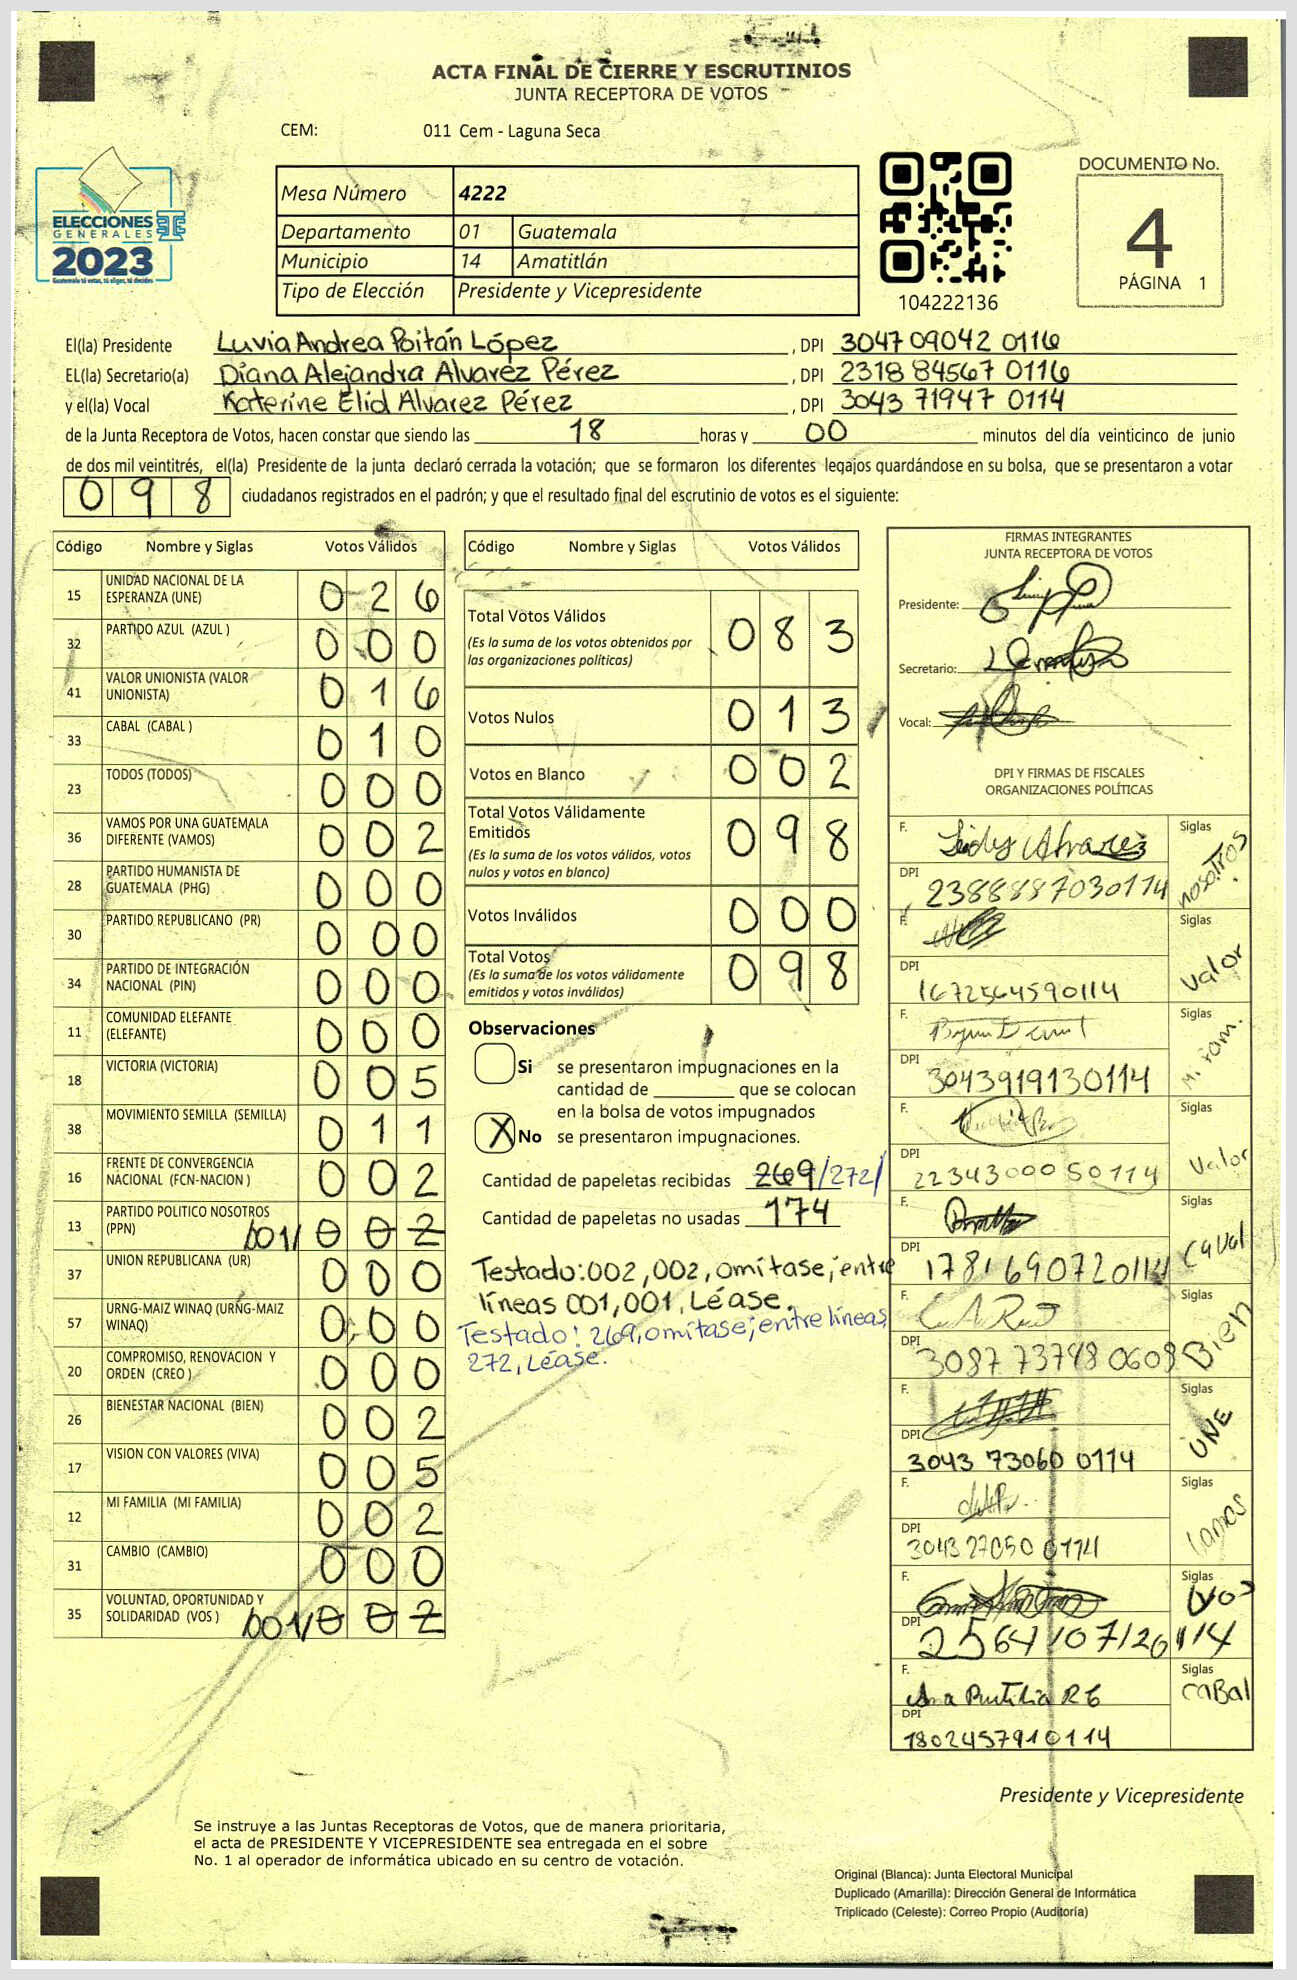 ACTA FINAL DE CIERRE Y ESCRUTINIOS
JUNTA RECEPTORA DE VOTOS
CEM: 011 Cem - Laguna Seca
ELECCIONES
GENERALES
2023
Guatemala tú votas, tú eliges, tú decides
Mesa Número 4222
Departamento 01 Guatemala
Municipio 14 Amatitlán
Tipo de Elección Presidente y Vicepresidente
104222136
DOCUMENTO No.
4
PÁGINA 1
El(la) Presidente Luvia Andrea Poitán López , DPI 3047 09042 0116
EL(la) Secretario(a) Diana Alejandra Alvarez Pérez , DPI 2318 84567 0116
y el(la) Vocal Katerine Elid Alvarez Pérez , DPI 3043 71947 0114
de la Junta Receptora de Votos, hacen constar que siendo las 18 horas y 00 minutos del día veinticinco de junio
de dos mil veintitrés, el(la) Presidente de la junta declaró cerrada la votación; que se formaron los diferentes legajos guardándose en su bolsa, que se presentaron a votar
098 ciudadanos registrados en el padrón; y que el resultado final del escrutinio de votos es el siguiente:
Código Nombre y Siglas Votos Válidos
15 UNIDAD NACIONAL DE LA ESPERANZA (UNE) 026
32 PARTIDO AZUL (AZUL ) 000
41 VALOR UNIONISTA (VALOR UNIONISTA) 016
33 CABAL (CABAL ) 010
23 TODOS (TODOS) 000
36 VAMOS POR UNA GUATEMALA DIFERENTE (VAMOS) 002
28 PARTIDO HUMANISTA DE GUATEMALA (PHG) 000
30 PARTIDO REPUBLICANO (PR) 000
34 PARTIDO DE INTEGRACIÓN NACIONAL (PIN) 000
11 COMUNIDAD ELEFANTE (ELEFANTE) 000
18 VICTORIA (VICTORIA) 005
38 MOVIMIENTO SEMILLA (SEMILLA) 011
16 FRENTE DE CONVERGENCIA NACIONAL (FCN-NACION ) 002
13 PARTIDO POLITICO NOSOTROS (PPN) 001/ 002
37 UNION REPUBLICANA (UR) 000
57 URNG-MAIZ WINAQ (URNG-MAIZ WINAQ) 000
20 COMPROMISO, RENOVACION Y ORDEN (CREO ) 000
26 BIENESTAR NACIONAL (BIEN) 002
17 VISION CON VALORES (VIVA) 005
12 MI FAMILIA (MI FAMILIA) 002
31 CAMBIO (CAMBIO) 000
35 VOLUNTAD, OPORTUNIDAD Y SOLIDARIDAD (VOS ) 001/ 002
Código Nombre y Siglas Votos Válidos
Total Votos Válidos 083
(Es la suma de los votos obtenidos por
las organizaciones políticas)
Votos Nulos 013
Votos en Blanco 002
Total Votos Válidamente
Emitidos 098
(Es la suma de los votos válidos, votos
nulos y votos en blanco)
Votos Inválidos 000
Total Votos 098
(Es la suma de los votos válidamente
emitidos y votos inválidos)
Observaciones
Si se presentaron impugnaciones en la
cantidad de ________ que se colocan
en la bolsa de votos impugnados
X No se presentaron impugnaciones.
Cantidad de papeletas recibidas 269/272/
Cantidad de papeletas no usadas 174
Testado:002,002,omítase;entre
líneas 001,001,Léase.
Testado: 269,omítase;entre líneas
272,Léase.
FIRMAS INTEGRANTES
JUNTA RECEPTORA DE VOTOS
Presidente:
Secretario:
Vocal:
DPI Y FIRMAS DE FISCALES
ORGANIZACIONES POLÍTICAS
F. Leidy Alvarez Siglas nosotros
DPI 2388887030114
F. Siglas Valor
DPI 1672564590114
F. Siglas M. Fam.
DPI 3043919130114
F. Siglas Valor
DPI 2234300050114
F. Siglas CaVal
DPI 1781690720114
F. Siglas Bien
DPI 3087 73748 0608
F. Siglas UNE
DPI 3043 73060 0114
F. Siglas
DPI 3043 27050 0114
F. Siglas VOS
DPI 2564107120114
F. Siglas CaBal
DPI 1802457910114
Presidente y Vicepresidente
Se instruye a las Juntas Receptoras de Votos, que de manera prioritaria,
el acta de PRESIDENTE Y VICEPRESIDENTE sea entregada en el sobre
No. 1 al operador de informática ubicado en su centro de votación.
Original (Blanca): Junta Electoral Municipal
Duplicado (Amarilla): Dirección General de Informática
Triplicado (Celeste): Correo Propio (Auditoría)